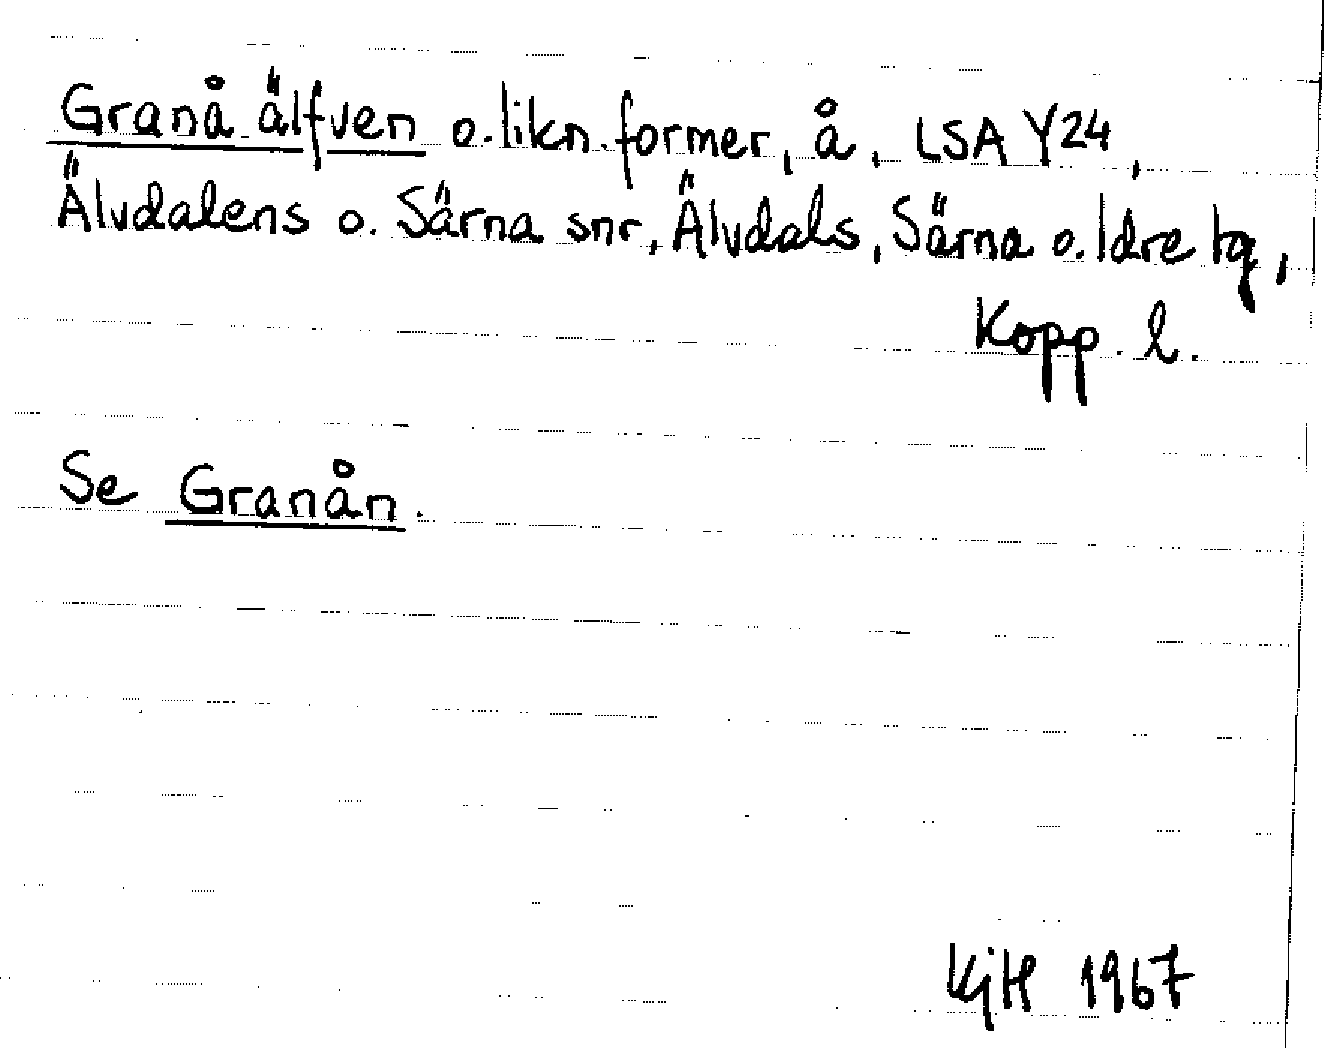 Granå älfven o. likn. former, å, LSA Y24,
Älvdalens o. Särna snr, Älvdals, Särna o. Idre tg,
Kopp. l.
Se Granån.
KjH 1967